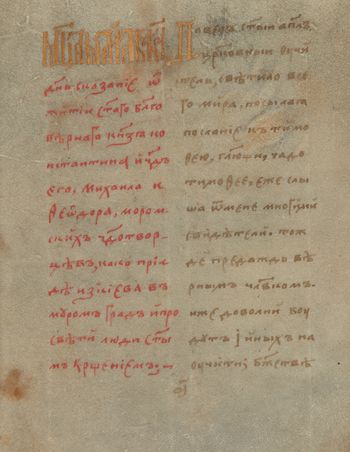 днь сказанїе ѿ
житїи ст҃аго бл҃го
вѣрнаго кн҃зѧ ко
нстантина и чѧдъ
его, михаила и
ѳеѡдора, мором
скихъ чюдотвор
цевъ, како прїи
де из кїева въ
муромъ градъ и про
свѣти люди ст҃ы
мъ крщенїемъ
ст҃ыи ап҃лъ,
церковныи оучи
тель, свѣтило все
го мира, посылаѧ
посланїе къ тимо
ѳею, гл҃ющи, чадо
тимоѳее, еже слы
ша ѿ мене многими
свидѣтели. тож
де предаждь вѣ
рнымъ чл҃вкомъ.
иже доволни боу
дутъ и иныхъ на
оучити; бж҃ествѣ